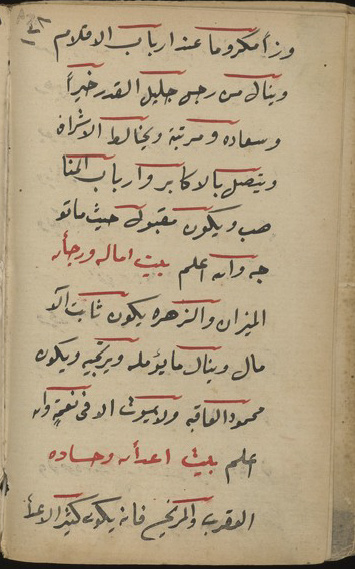 وزأ مكروما عند ارباب الاقلام
وينال من رجل جليل القدر خيراً
وسعاده ومرتبة ويخالط الاشراف
ويتصل بالاكابر وارباب المنا
صب ويكون مقبول حيث ماتو
جه والله اعلم بيت اماله ورجأه
الميزان والزهره يكون ثابت الآ
مال وينال ما يؤمله ويرتجيه ويكون
محمود العاقبه ولا يموت الا في نعمة والله
اعلم بيت اعدأه وحساده
العقرب والمريخ فانه يكون كثير الاعدأ